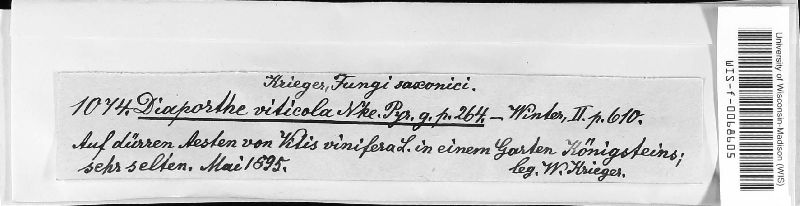 Krieger, Fungi saxonici.
1074. Diaporthe viticola Nke. Pyr. g. p. 264 — Winter, II. p. 610.
Auf dürren Aesten von Vitis vinifera L. in einem Garten Königsteins;
sehr selten. Mai 1895.
leg. W. Krieger.
University of Wisconsin-Madison (WIS)
WIS-f-0068605